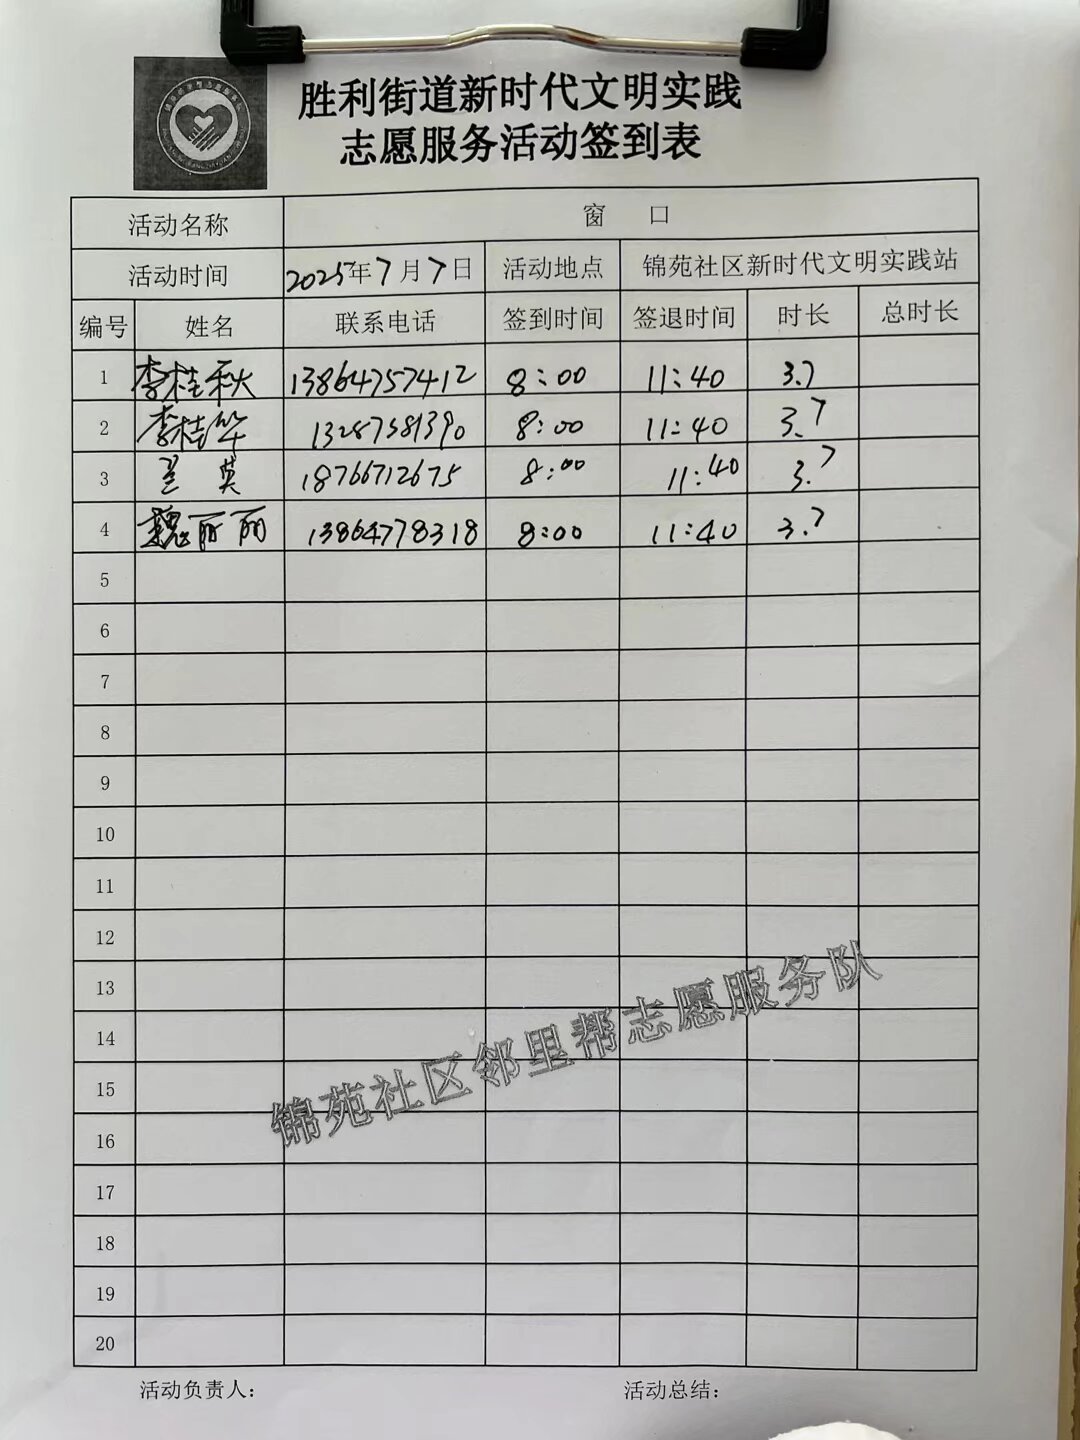 胜利街道新时代文明实践
志愿服务活动签到表
活动名称 窗 口
活动时间 2025年7月7日 活动地点 锦苑社区新时代文明实践站
编号 姓名 联系电话 签到时间 签退时间 时长 总时长
1 李桂秋 13864757412 8:00 11:40 3.7
2 李桂华 13287381390 8:00 11:40 3.7
3 兰英 18766712675 8:00 11:40 3.7
4 魏丽丽 13864778318 8:00 11:40 3.7
5
6
7
8
9
10
11
12
13
14
15
16
17
18
19
20
锦苑社区邻里帮志愿服务队
活动负责人: 活动总结: